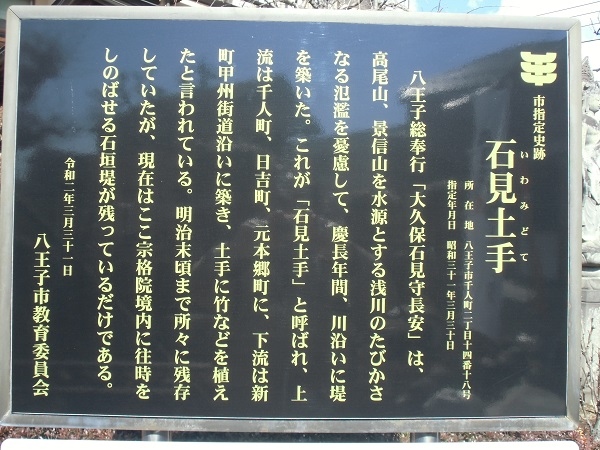 市指定史跡
石見土手
いわみどて
所在地 八王子市千人町二丁目十四番十八号
指定年月日 昭和三十一年三月三十日
八王子総奉行「大久保石見守長安」は、
高尾山、景信山を水源とする浅川のたびかさ
なる氾濫を憂慮して、慶長年間、川沿いに堤
を築いた。これが「石見土手」と呼ばれ、上
流は千人町、日吉町、元本郷町に、下流は新
町甲州街道沿いに築き、土手に竹などを植え
たと言われている。明治末頃まで所々に残存
していたが、現在はここ宗格院境内に往時を
しのばせる石垣堤が残っているだけである。
令和二年三月三十一日
八王子市教育委員会